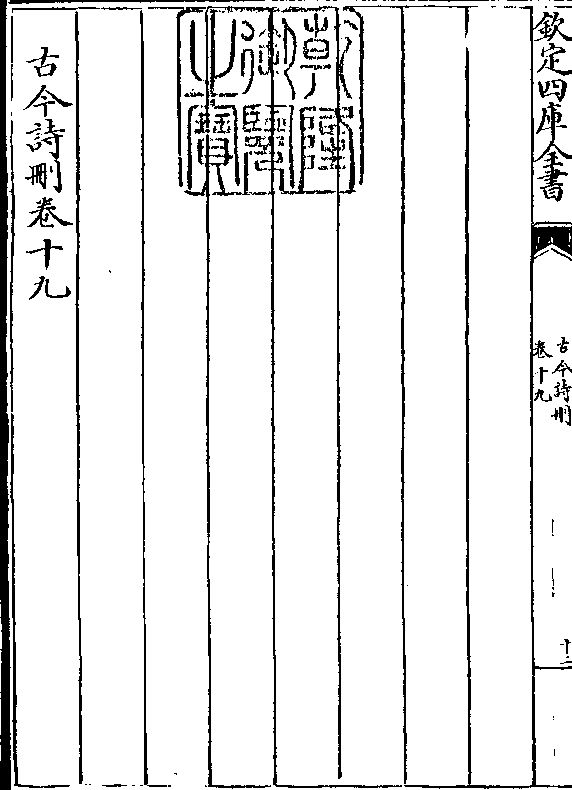 欽定四庫全書
古今詩刪
卷十九
十二
乾隆御覽之寶
古今詩刪卷十九